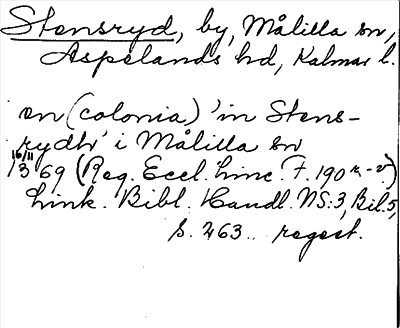 Stensryd, by, Målilla sn,
Aspelands hd, Kalmar l.
en (colonia) 'in Stens-
rydh' i Målilla sn
16/11 1369 (Reg. Eccl. Linc. F. 190 r.-v.)
Link. Bibl. Handl. NS:3, Bil. 5,
s. 263.. regest.